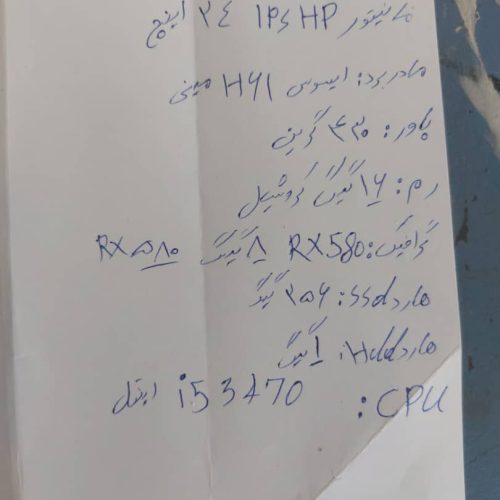 مانیتور IPS HP ۲۴ اینچ
مادربرد: ایسوس H61 مینی
پاور: ۴۳۰ گرین
رم: ۱۶ گیگ کروشیال
گرافیک: RX580 ۸ گیگ RX ۵۸۰
هارد ssd: ۲۵۶ گیگ
هارد Hdd: ۱ گیگ
CPU: i5 3470 اینتل